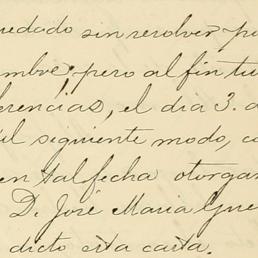 quedado sin resolver p
mbre; pero al fin tu
erencias, el dia 3. d
il siguiente modo, co
en tal fecha otorga
D. José Maria Gue
dicto esta carta.